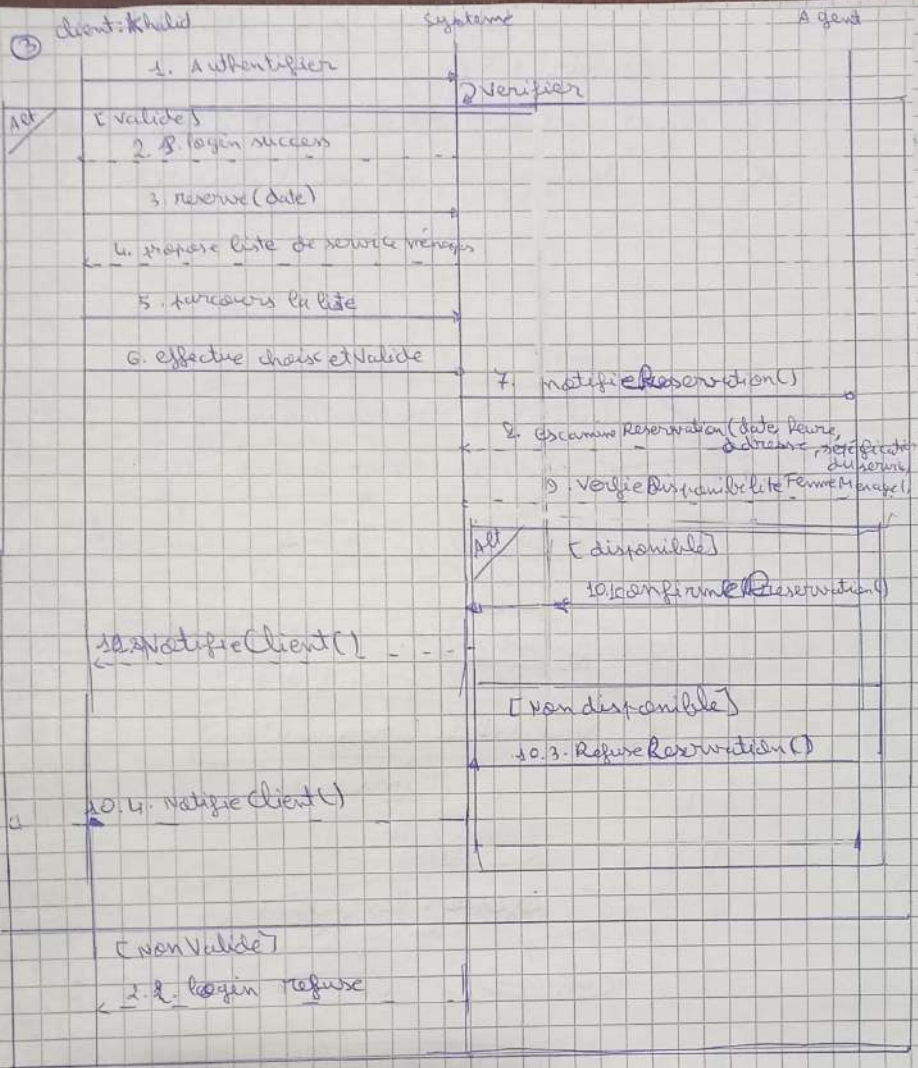 3 client: Khalid Système Agent
1. Authentifier
2 verifier
Alt [valide]
2. 1. login success
3. reserve (date)
4. propose liste de service ménages
5. parcours la liste
6. effectue choix et valide
7. notifie Reservation()
8. examine Reservation (date, heure,
adresse,
du service
9. Verfie Disponibilite Femme Menage(
Alt [disponible]
10.1 confirme Reservation()
10.2 Notifie Client()
[Non disponible]
10.3. Refuse Reservation()
10.4. Notifie Client()
[Non Valide]
2.2. login refuse